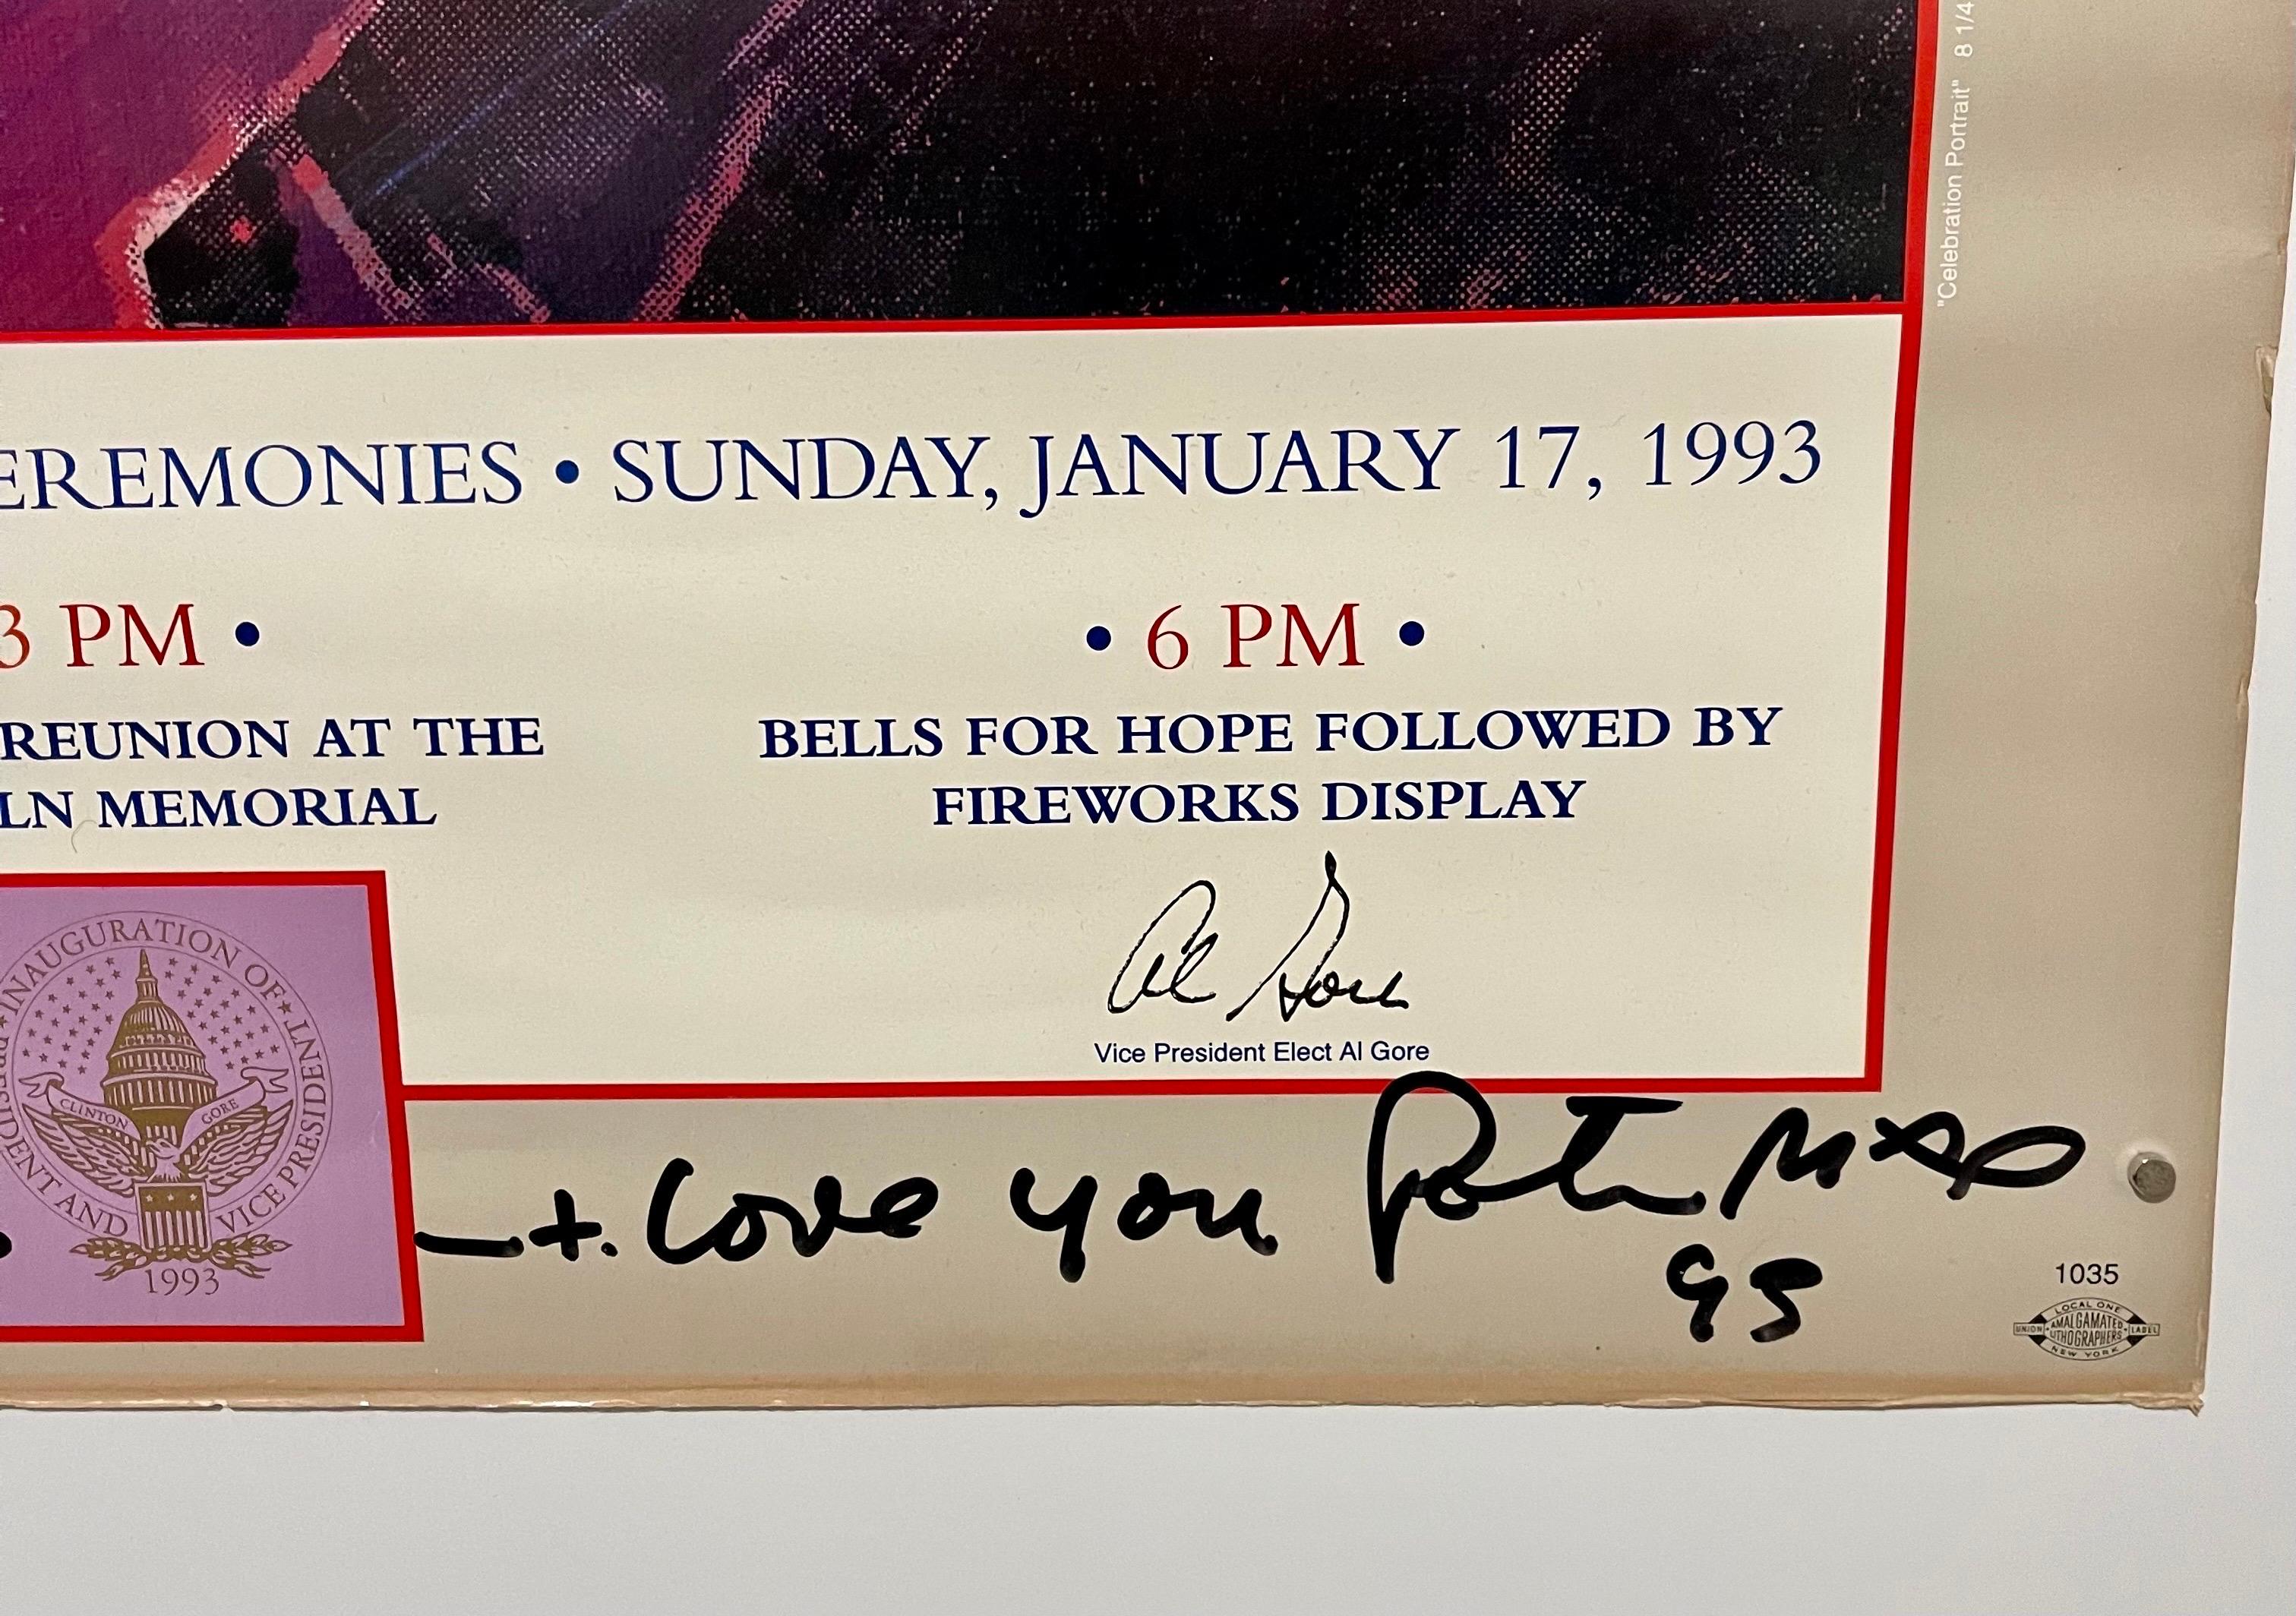 "Celebration Portrait" 8 1/4
EREMONIES • SUNDAY, JANUARY 17, 1993
3 PM •
REUNION AT THE
LN MEMORIAL
• 6 PM •
BELLS FOR HOPE FOLLOWED BY
FIREWORKS DISPLAY
Al Gore
Vice President Elect Al Gore
INAUGURATION OF
PRESIDENT AND VICE PRESIDENT
CLINTON GORE
1993
+. Love you Peter Max
93
1035
LOCAL ONE
UNION AMALGAMATED LABEL
LITHOGRAPHERS
NEW YORK